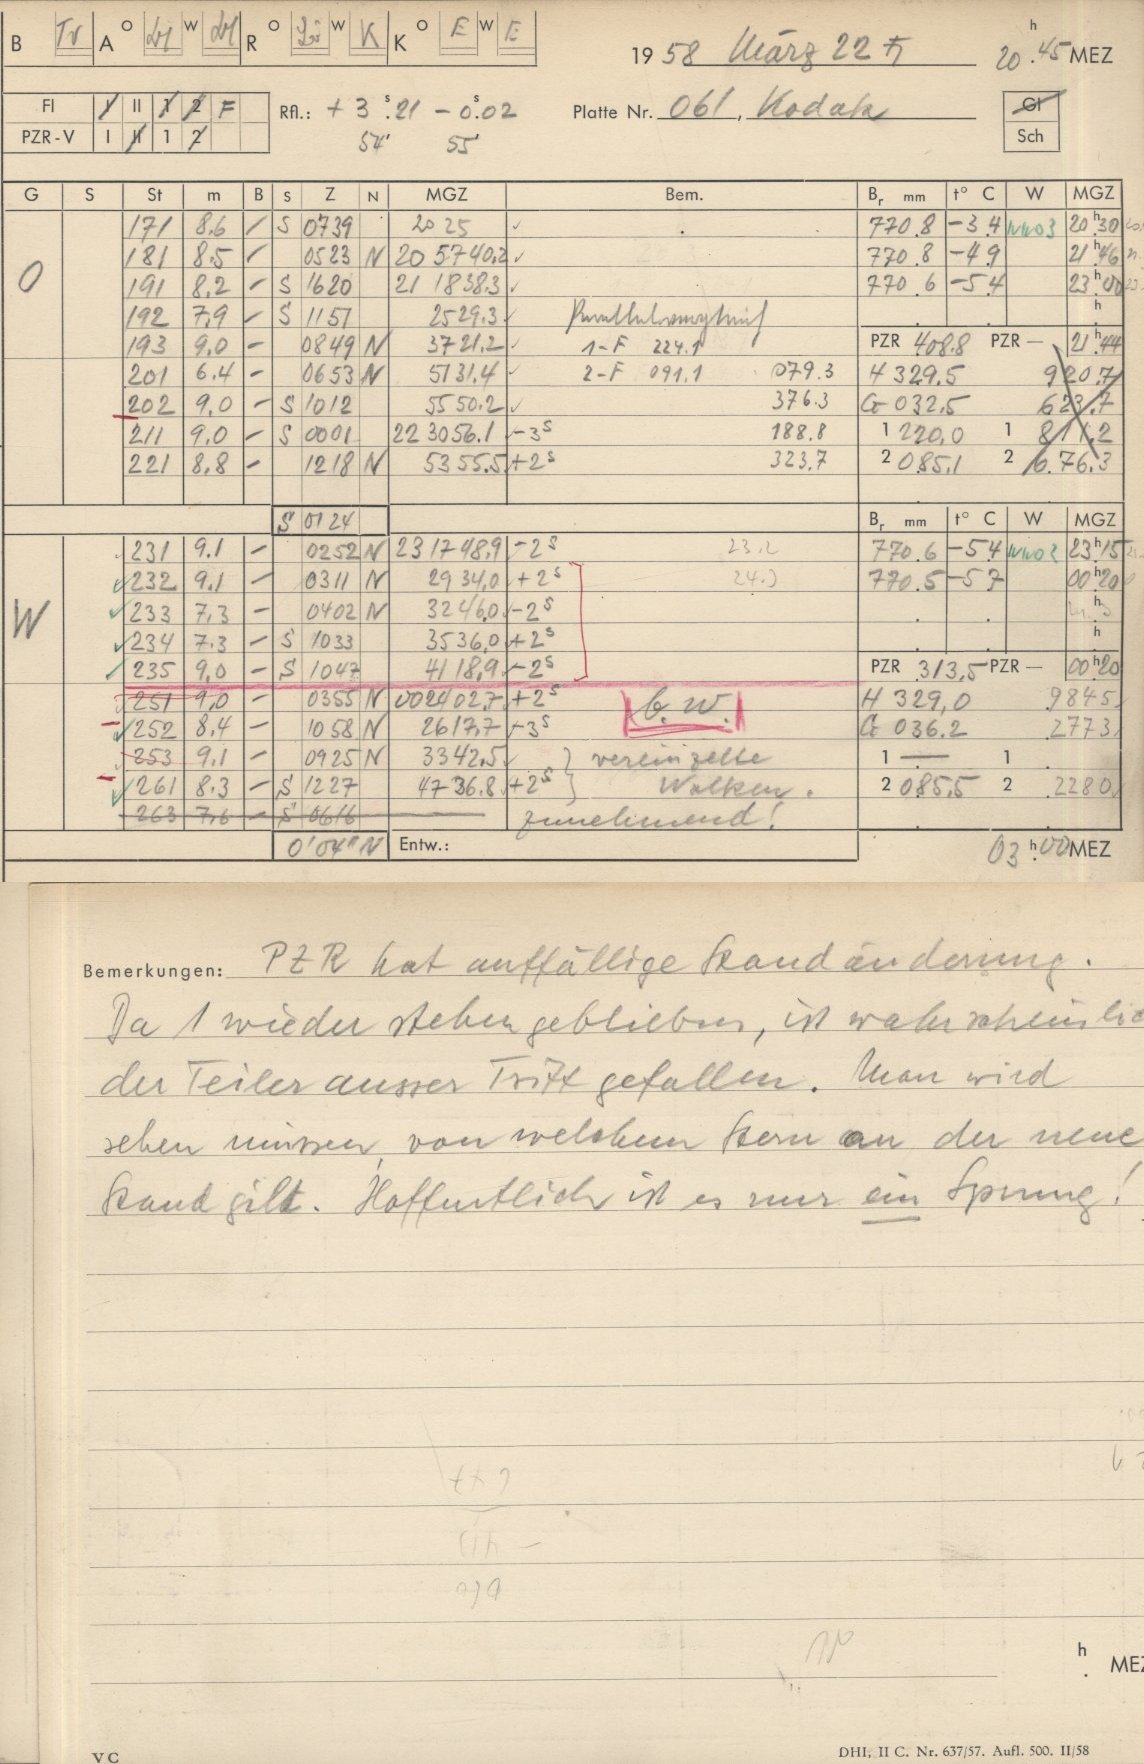 B Tr A O W R O W K K O E W E
1958 März 22 ♄ 20 h 45 MEZ
Fl I II 1 2 F Rfl.: + 3 s.21 - 0 s.02 Platte Nr. 061, Kodak Gl
PZR-V I II 1 2 54' 55' Sch
G S St m B S Z N MGZ Bem. Br mm t° C W MGZ
O
171 8.6 / S 0739 20 25 ✓ 770.8 -3.4 NNO3 20 h 30
181 8.5 / 0523 N 20 57 40.2 ✓ 770.8 -4.9 21 h 46
191 8.2 - S 1620 21 18 38.3 ✓ 770.6 -5.4 23 h 00
192 7.9 - S 1151 25 29.3 ✓ h
193 9.0 - 0849 N 37 21.2 ✓ 1-F 224.1 PZR 408.8 PZR — 21 h 44
201 6.4 - 0653 N 51 31.4 ✓ 2-F 091.1 079.3 H 329.5 920.7
202 9.0 - S 1012 55 50.2 ✓ 376.3 G 032.5 623.7
211 9.0 - S 0001 22 30 56.1 -3s 188.8 1 220.0 1 811.2
221 8.8 - 1218 N 53 55.5 +2s 323.7 2 085.1 2 676.3
S 0124 Br mm t° C W MGZ
W
231 9.1 - 0252 N 23 17 48.9 -2s 23.2 770.6 -5.4 NNO2 23 h 15
232 9.1 - 0311 N 29 34.0 +2s 770.5 -5.7 00 h 20
233 7.3 - 0402 N 32 46.0 -2s h
234 7.3 - S 1033 35 36.0 +2s h
235 9.0 - S 1047 41 18.9 -2s PZR 313.5 PZR — 00 h 20
251 9.0 - 0355 N 00 24 02.7 +2s b. w. H 329.0 984.5
252 8.4 - 1058 N 26 17.7 -3s G 036.2 277.3
253 9.1 - 0925 N 33 42.5 vereinzelte 1 — 1
261 8.3 - S 1227 47 36.8 +2s Wolken. 2 085.5 2 228.0
263 7.6 - S 0616 — zunehmend!
0'04" N Entw.: 03 h 00 MEZ
Bemerkungen: PZR hat auffällige Standänderung.
Da 1 wieder stehengeblieben, ist wahrscheinlic
der Teiler ausser Tritt gefallen. Man wird
sehen müssen, von welchem Stern an der neue
Stand gilt. Hoffentlich ist es nur ein Sprung!
h
MEZ
VC DHI, II C. Nr. 637/57. Aufl. 500. II/58